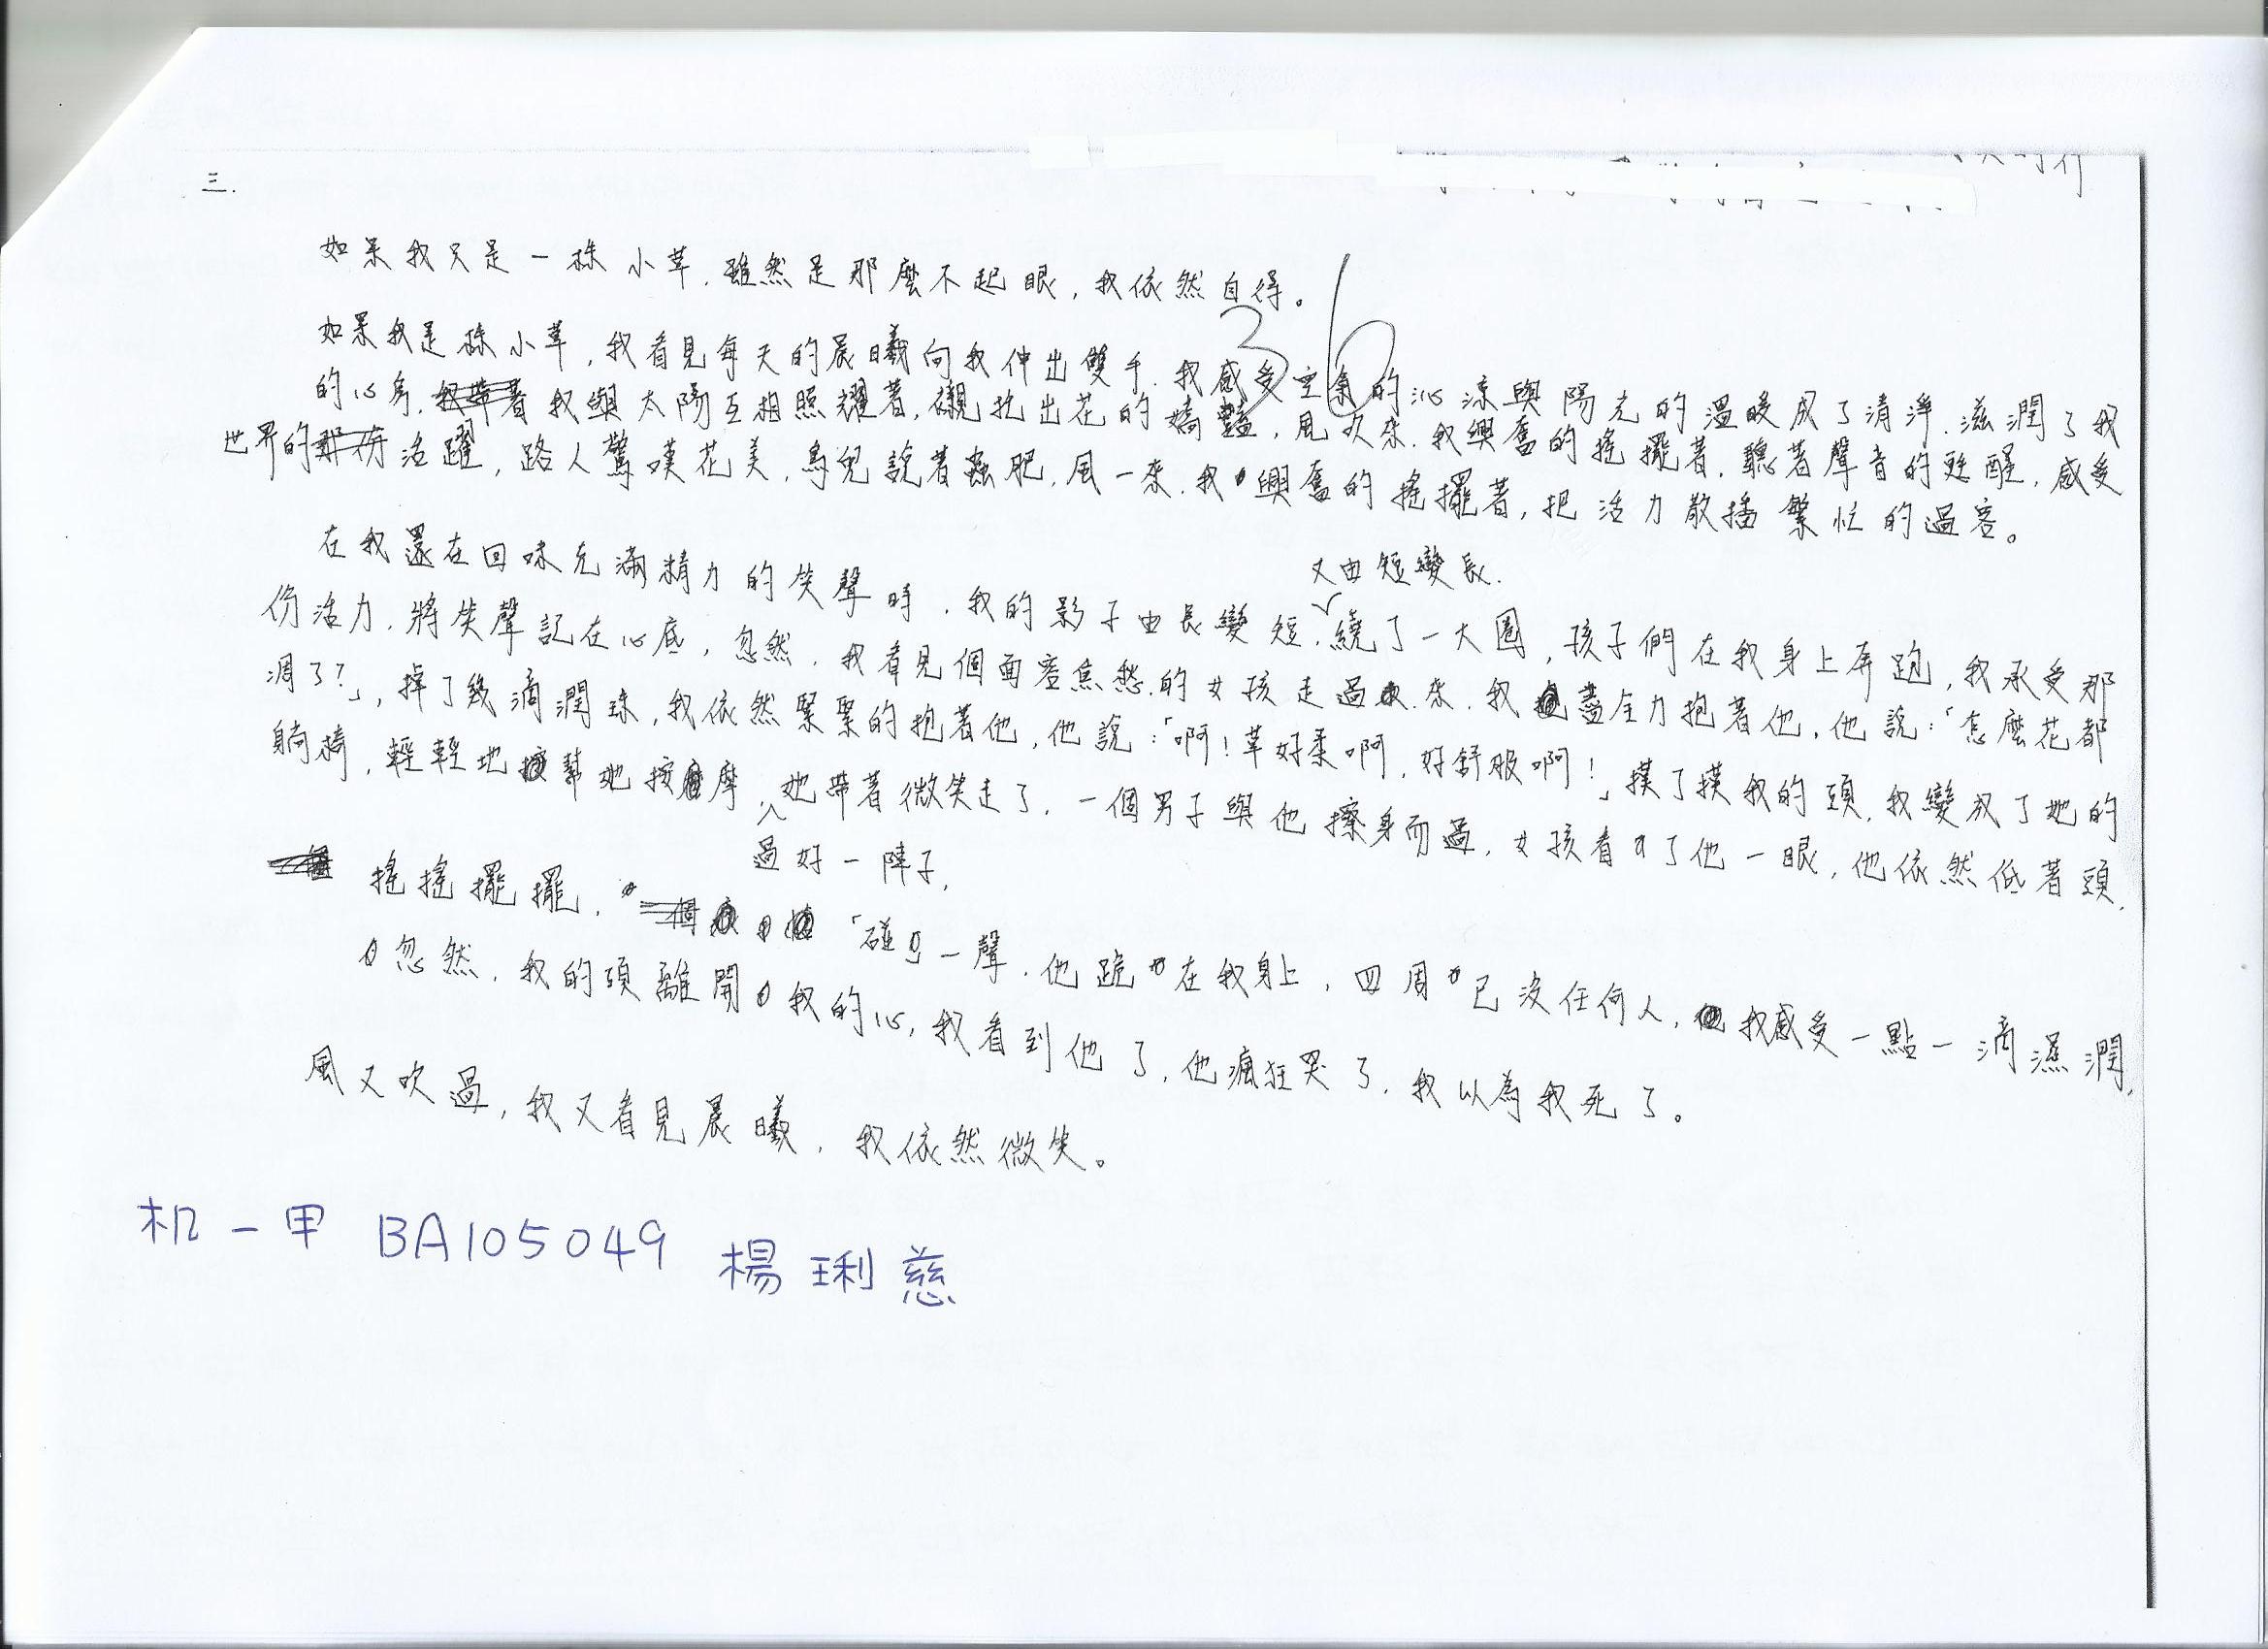 三.
如果我只是一株小草，雖然是那麼不起眼，我依然自得。
36
如果我是株小草，我看見每天的晨曦向我伸出雙手，我感受空氣的沁涼與陽光的溫暖成了清淨，滋潤了我
的心房，我與太陽互相照耀著，襯托出花的嬌豔，風吹來，我興奮的搖擺著，聽著聲音的甦醒，感受
世界的活躍，路人驚嘆花美，鳥兒說著蟲肥，風一來，我興奮的搖擺著，把活力散播繁忙的過客。
在我還在回味充滿精力的笑聲時，我的影子由長變短，又由短變長，繞了一大圈，孩子們在我身上奔跑，我承受那
份活力，將笑聲記在心底，忽然，我看見個面容焦愁的女孩走過來，我盡全力抱著他，他說：「怎麼花都
凋了?」，掉了幾滴潤珠，我依然緊緊的抱著他，他說：「啊！草好柔啊，好舒服啊！」摸了摸我的頭，我變成了她的
躺椅，輕輕地幫她按摩，過好一陣子，她帶著微笑走了，一個男子與他擦身而過，女孩看了他一眼，他依然低著頭，
搖搖擺擺，「碰」一聲，他跪在我身上，四周已沒任何人，我感受一點一滴濕潤，
忽然，我的頭離開我的心，我看到他了，他瘋狂哭了，我以為我死了。
風又吹過，我又看見晨曦，我依然微笑。
机一甲 BA105049 楊琍慈